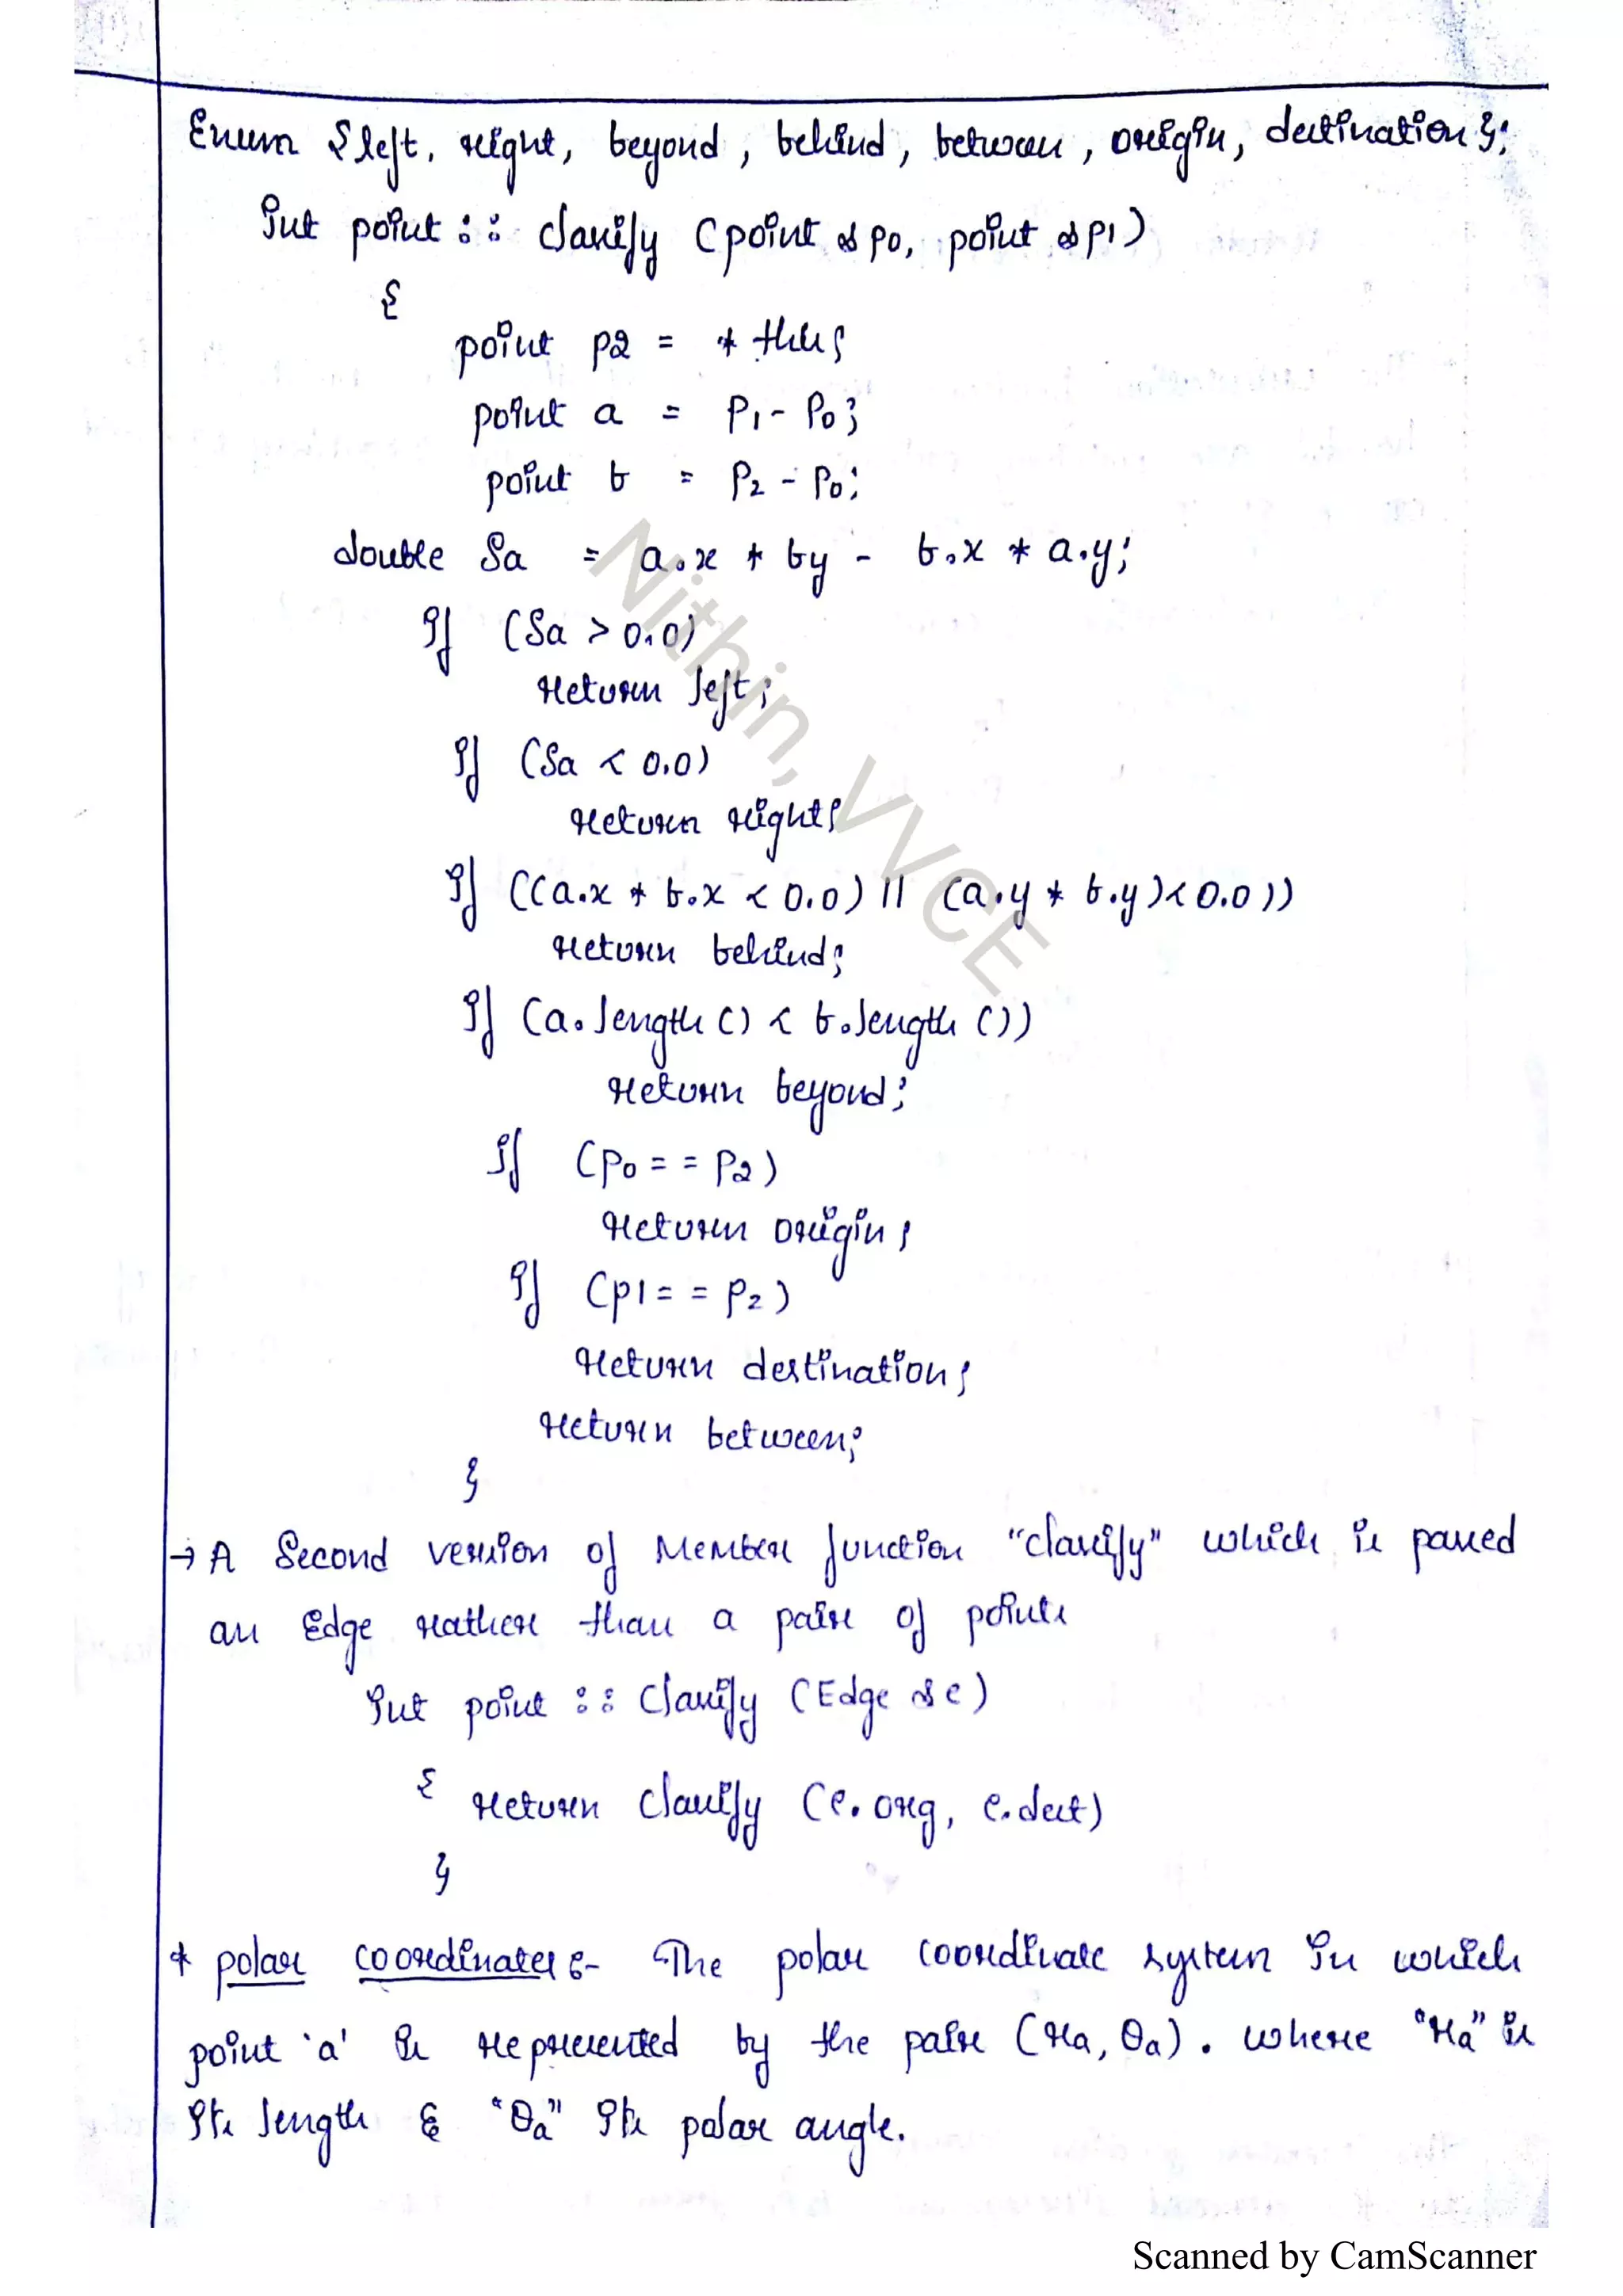 Enum {left, right, beyond, behind, between, origin, destination};
int point :: classify (point &p0, point &p1)
{
point p2 = * this;
point a = P1 - P0;
point b = P2 - P0;
double Sa = a.x * by - b.x * a.y;
If (Sa > 0.0)
return left;
If (Sa < 0.0)
return right;
If ((a.x * b.x < 0.0) || (a.y * b.y)<0.0))
return behind;
If (a.length () < b.length ())
return beyond;
If (P0 == P2)
return origin;
If (P1 == P2)
return destination;
return between;
}
→ A Second version of Member function "classify" which is passed
an Edge rather than a pair of points
Int point :: Classify (Edge &e)
{ return classify (e.org, e.dest)
}
* polar coordinates :- The polar coordinate system in which
point 'a' is represented by the pair (ra, θa). where "ra" is
Its length & "θa" Its polar angle.
Nithin, VVCE
Scanned by CamScanner